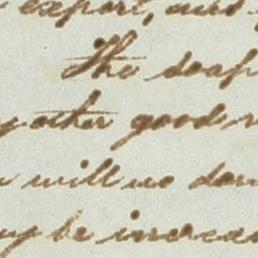 export, and
The soap
y other good
will no dou
y be increas